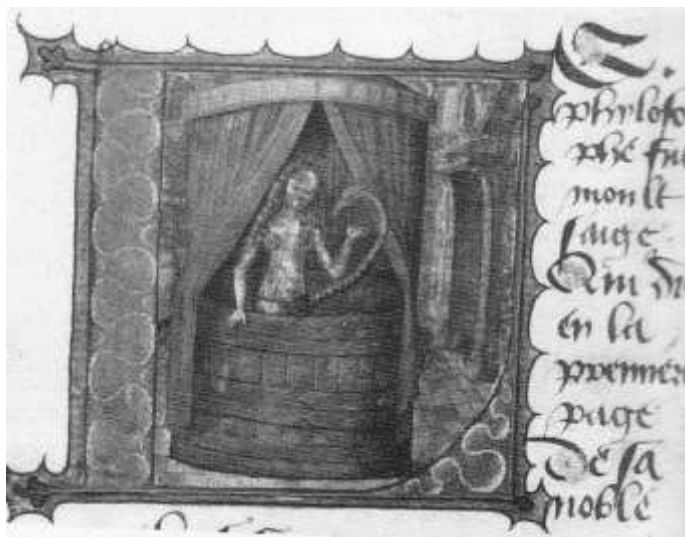 LE.
phyloso
phe fut
moult
saige
Qui di
en la
premier
page
De sa
noble